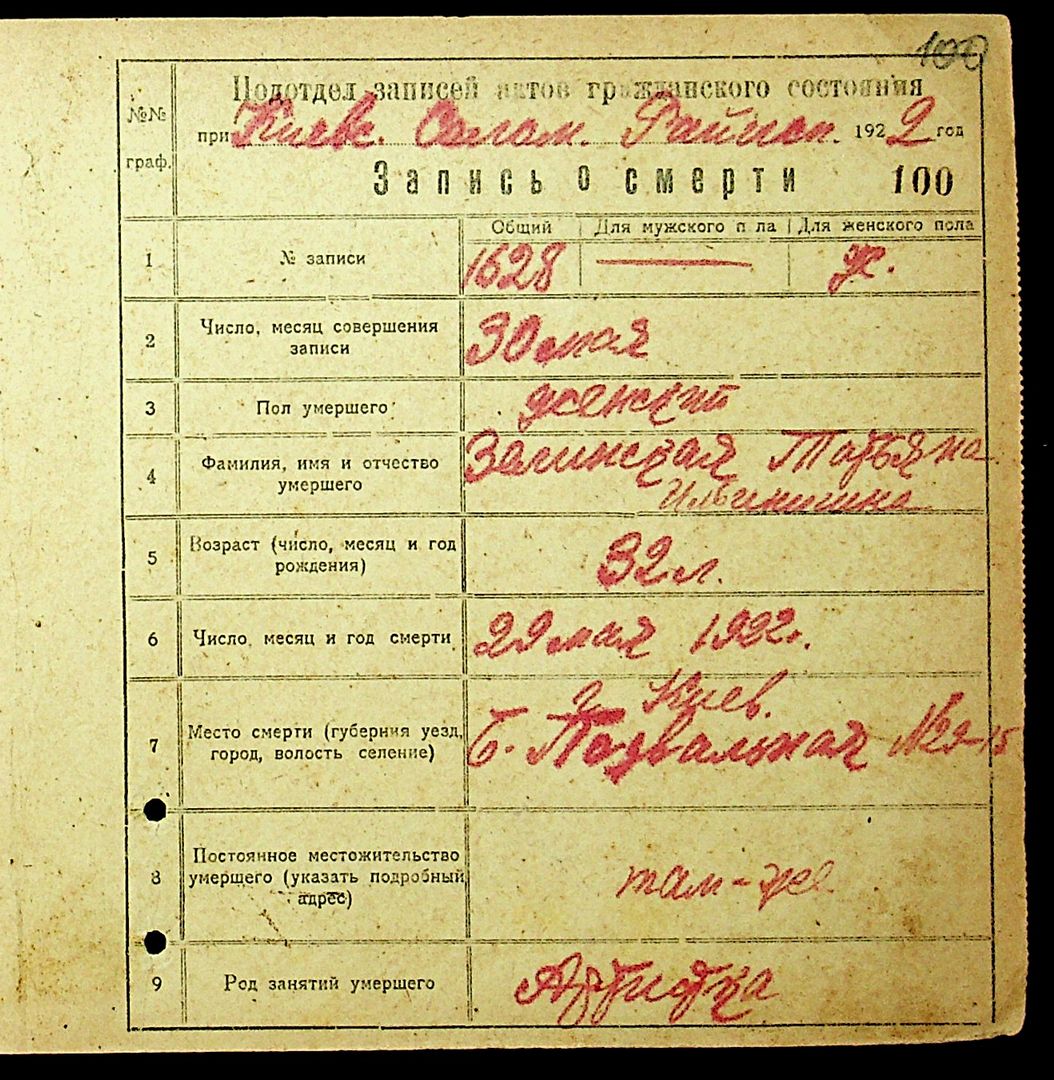 100
Подотдел записей актов гражданского состояния
№№ граф.
при Киевс. Солом. Райисп. 1922 год
Запись о смерти 100
Общий Для мужского п ла Для женского пола
1 № записи 1628 — ж.
2 Число, месяц совершения записи 30 мая
3 Пол умершего женский
4 Фамилия, имя и отчество умершего Татьяна
Ильинишна
5 Возраст (число, месяц и год рождения) 32 л.
6 Число, месяц и год смерти 29 мая 1922 г.
7 Место смерти (губерния уезд, город, волость селение) г. Киев.
Б. №
8 Постоянное местожительство умершего (указать подробный адрес) там-же
9 Род занятий умершего Артистка